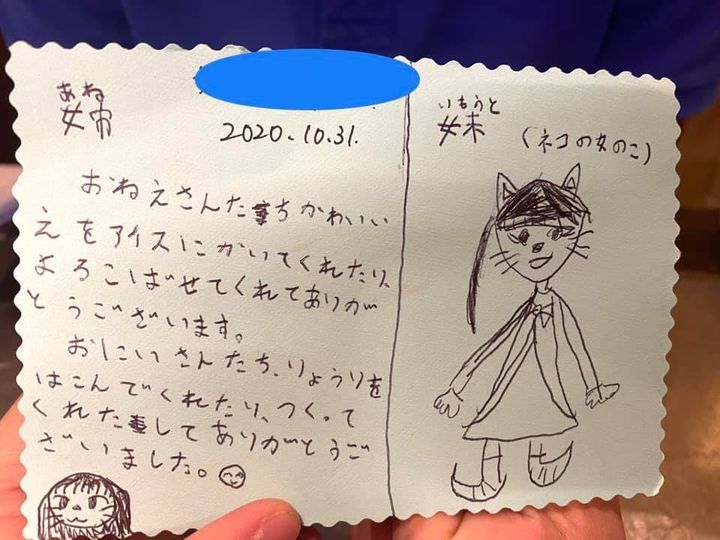 あね
姉
2020.10.31.
おねえさんたちかわいい
えをアイスにかいてくれたり、
よろこばせてくれてありが
とうございます。
おにいさんたち、りょうりを
はこんでくれたり、つくって
くれたましてありがとうご
ざいました。
いもうと
妹
(ネコの女のこ)